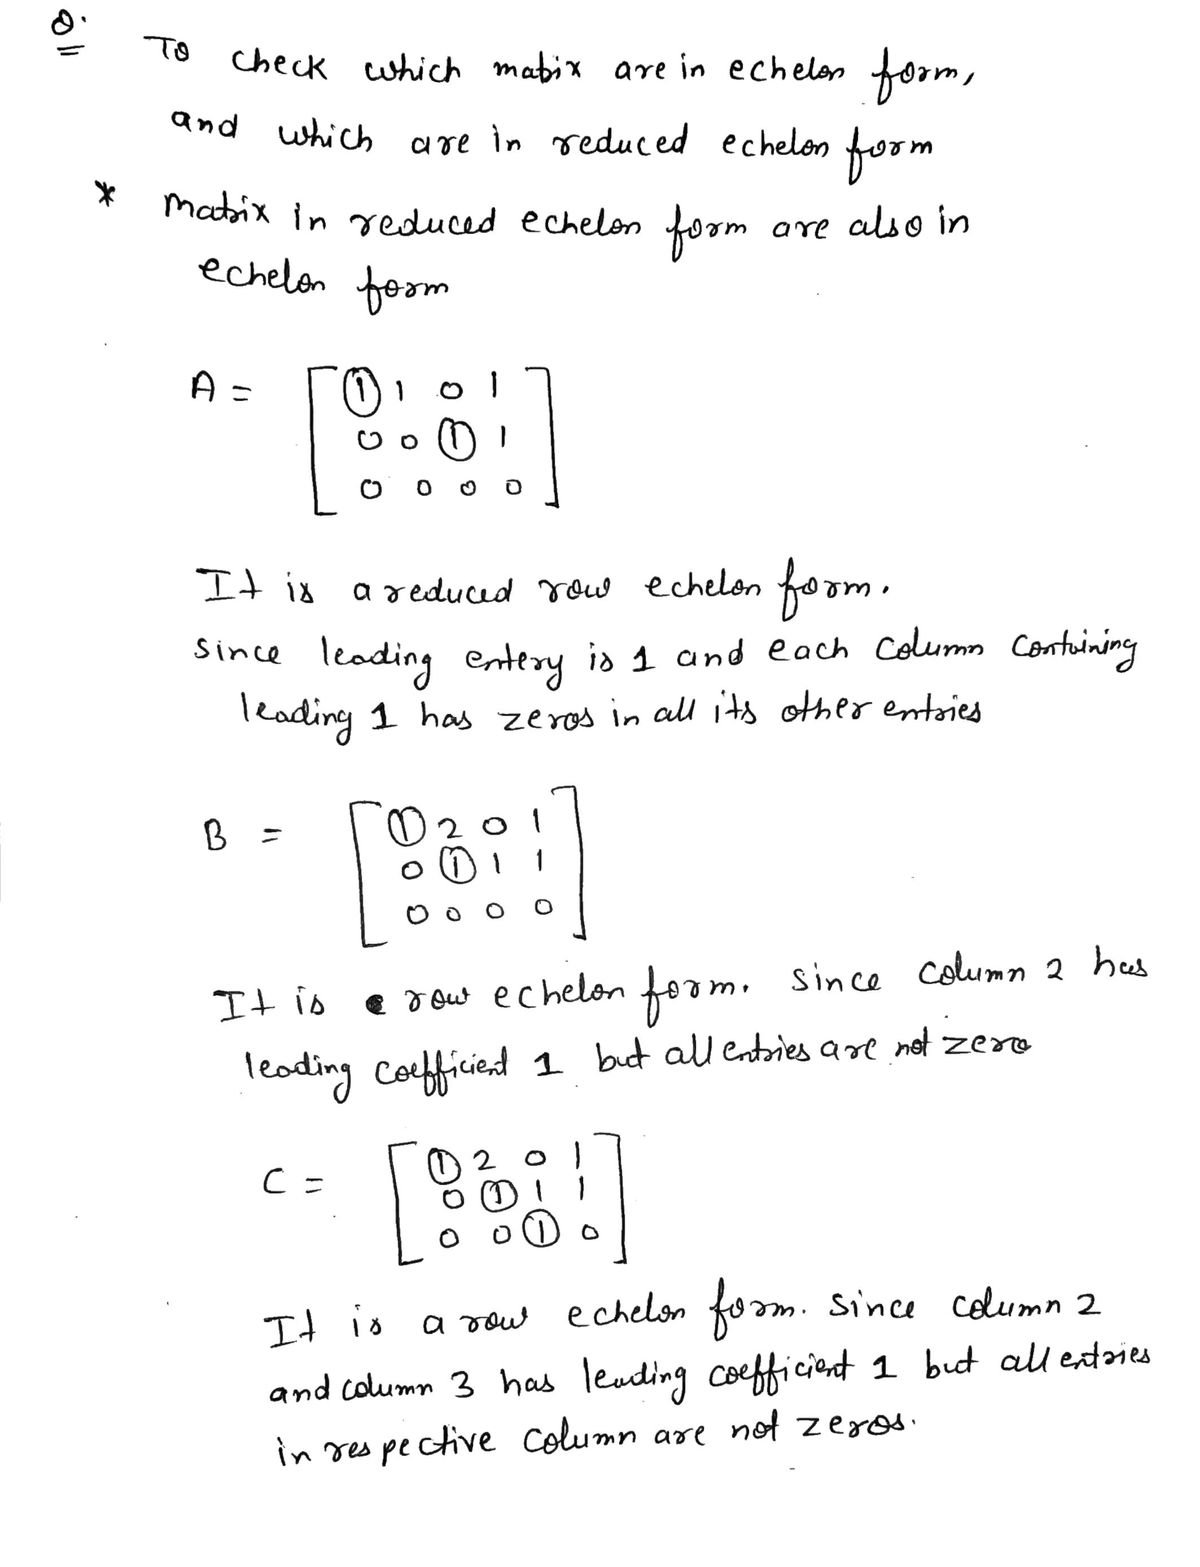 Q.
To check which matrix are in echelon form,
and which are in reduced echelon form
* matrix in reduced echelon form are also in
echelon form
A = [ 1 1 0 1
0 0 1 1
0 0 0 0 ]
It is a reduced row echelon form.
since leading entery is 1 and each column containing
leading 1 has zeros in all its other entries
B = [ 1 2 0 1
0 1 1 1
0 0 0 0 ]
It is a row echelon form. since column 2 has
leading coefficient 1 but all entries are not zero
C = [ 1 2 0 1
0 1 1 1
0 0 1 0 ]
It is a row echelon form. since column 2
and column 3 has leading coefficient 1 but all entries
in respective column are not zeros.